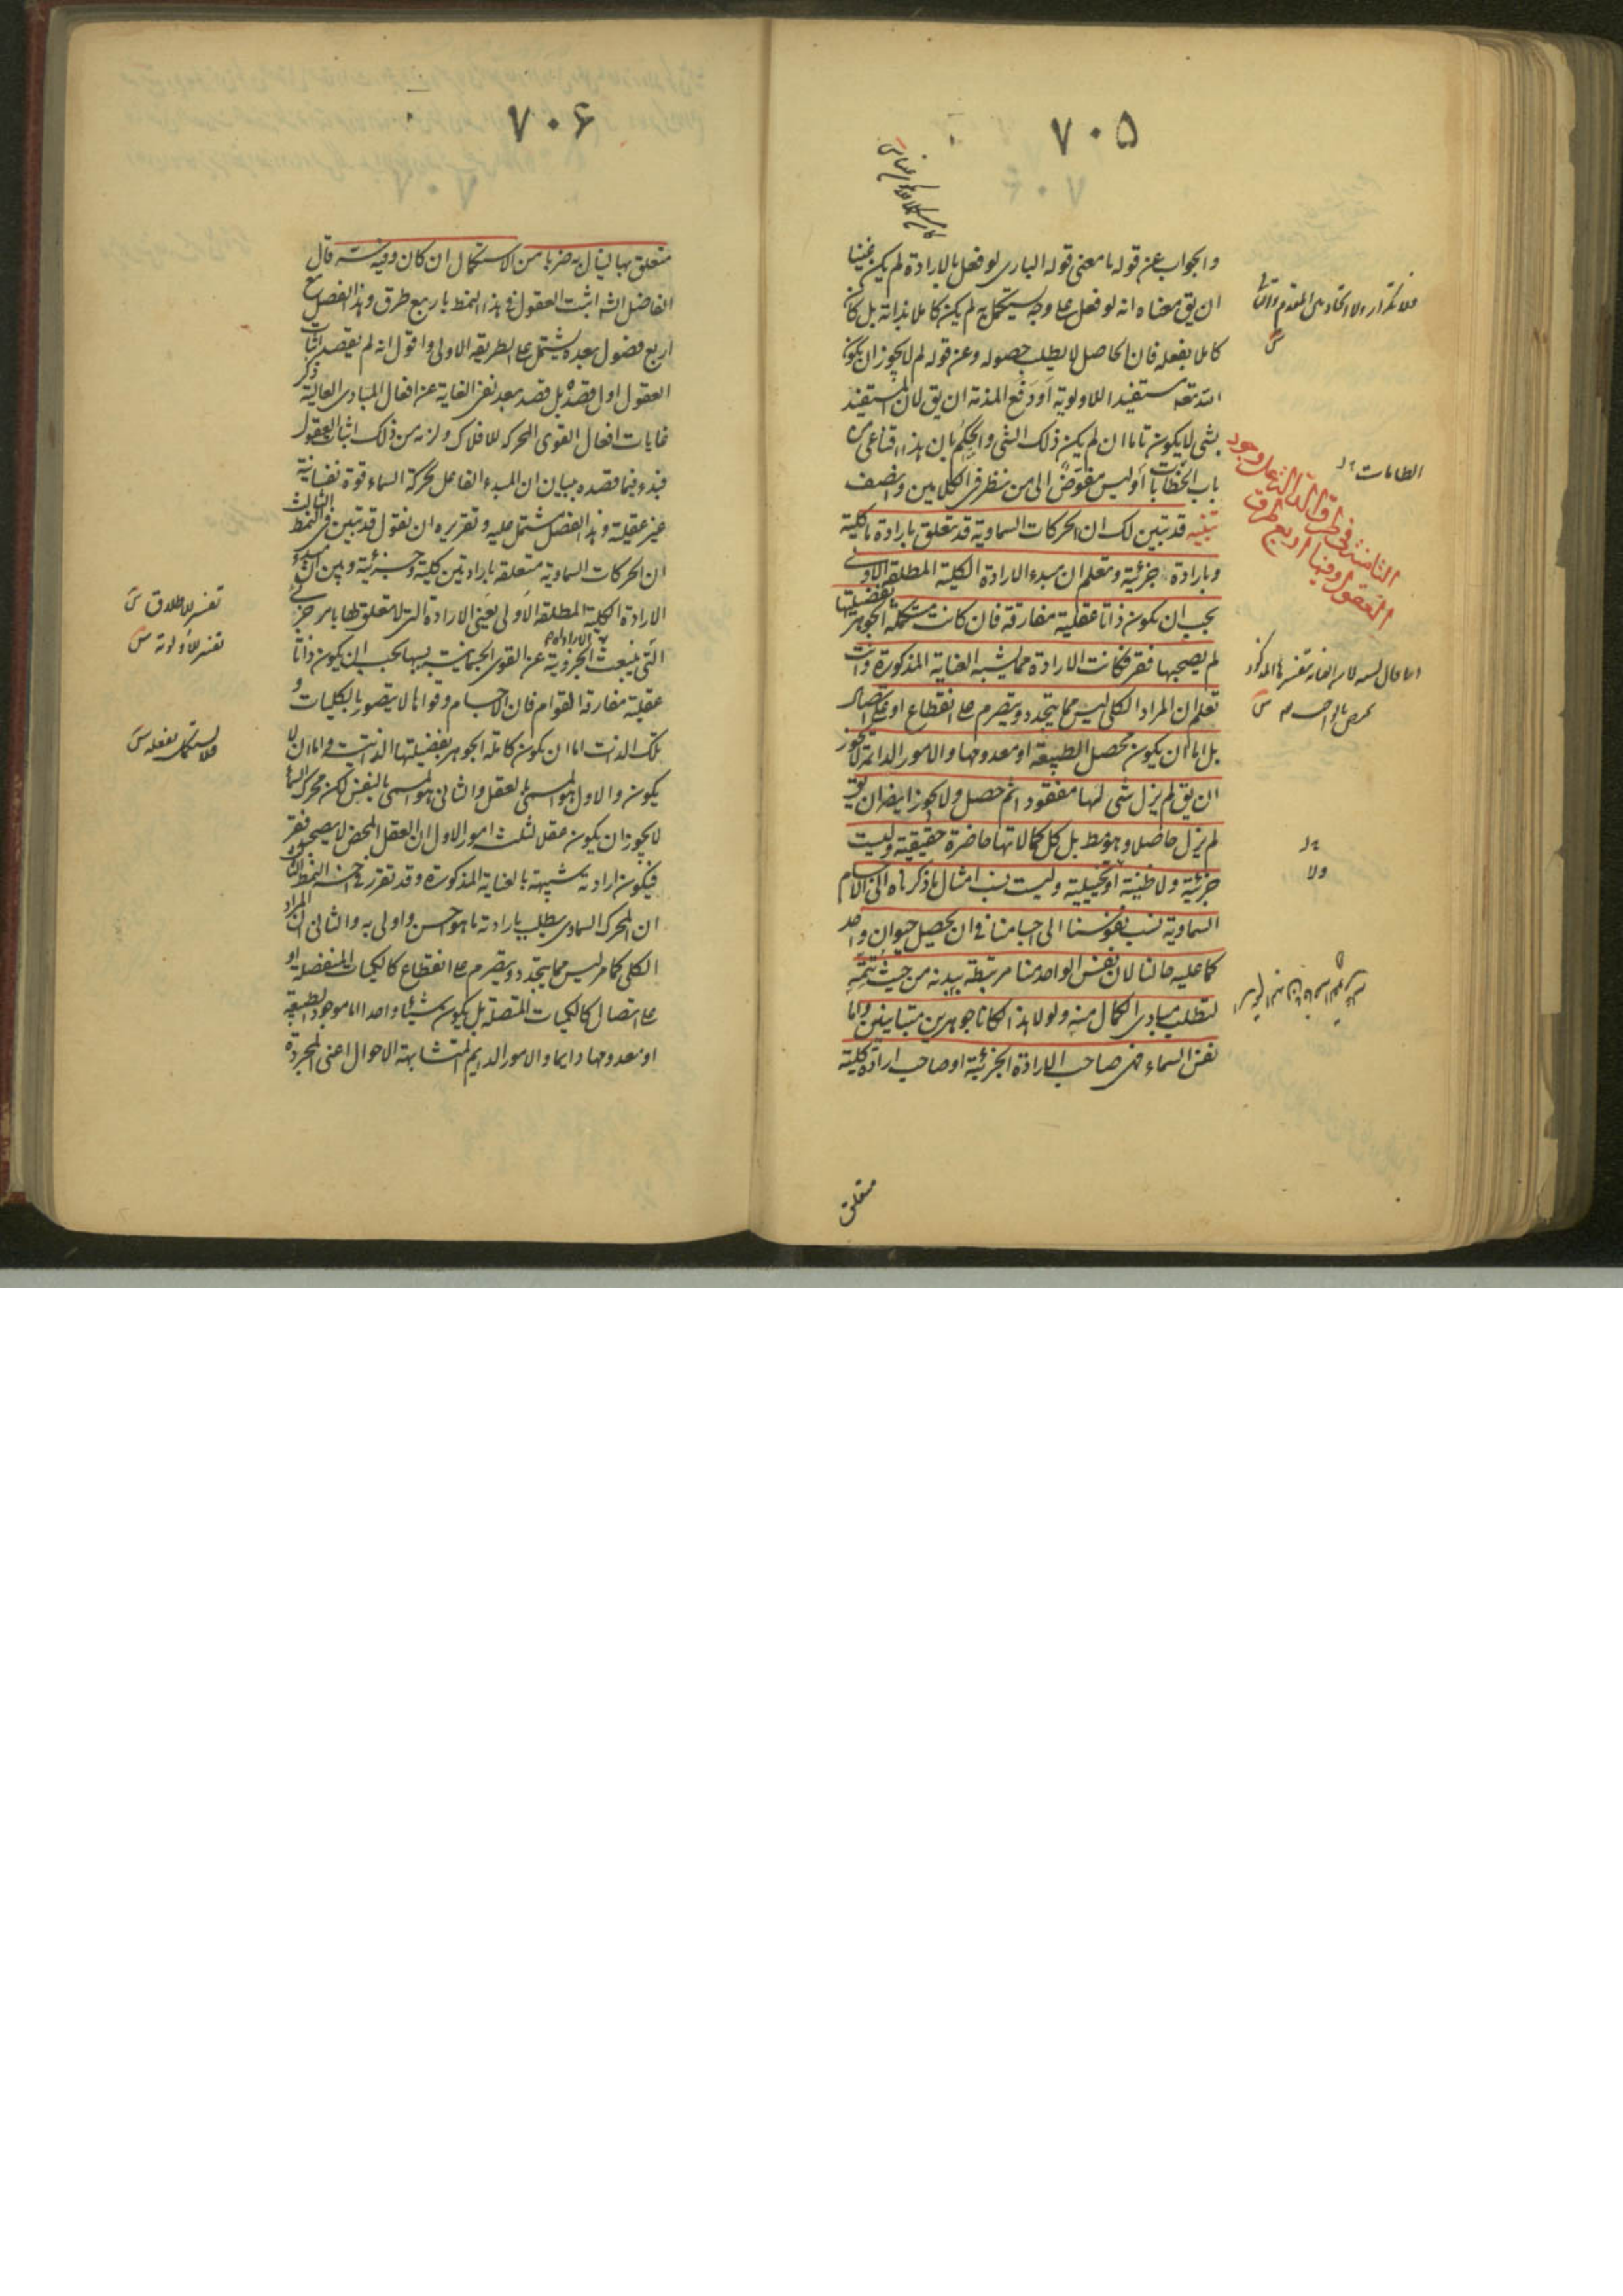 ٧٠٥
والجواب عن قوله ما معنى قوله البارى لو فعل بالارادة لم يكن غنيا
ان يق معناه انه لو فعل على وجه يستكمل به لم يكن كاملا بذاته بل كان
كاملا بفعله فان الحاصل لا يطلب حصوله وعن قوله لم لا يجوز ان يكون
الله تعه مستفيدا للاولوية او دفع المذمة ان يق لان المستفيد
بشى لا يكون تاما ان لم يكن ذلك الشى والحكم بان هذا اقناعى من
باب الخطابات او ليس مفوض الى من نظر فى الكلامين وينصف
تنبيه قد تبين لك ان الحركات السماوية قد تتعلق بارادة ما كلية
وبارادة جزئية وتعلم ان مبدء الارادة الكلية المطلقة الاولى
يجب ان يكون ذاتا عقلية مفارقة فان كانت مستكملة الجوهر بفضيلتها
لم يصحبها فقر فكانت الارادة مما يشبه العناية المذكورة وانت
تعلم ان المراد الكلى ليس مما يتجدد ويتصرم على انقطاع او على اتصال
بل اما ان يكون محصل الطبيعة او معدومها والامور الدائمة لا يجوز
ان يق لم يزل شى لها مفقودا ثم حصل ولا يجوز ايضا ان يق
لم يزل حاصلا وهو مط بل كل كمالاتها حاضرة حقيقية وليست
جزئية ولا ظنية او تخيلية وليست نسب امثال ما ذكرناه الى الاجسام
السماوية نسب نفوسنا الى اجسامنا فى ان يحصل حيوان واحد
كما عليه حالنا لان نفس الواحد منا مرتبطة ببدنه من حيث تتمه
لتطلب مبادى الكمال منه ولولا هذا لكانا جوهرين متباينين واما
نفس السماء فهى صاحب الارادة الجزئية او صاحب ارادة كلية
متعلق
فلا تكرار ولا اتحاد بين المقدم والتالى
الطامات
الثامنة فى طرق الدالة على وجود
العقول وفيها اربع طرق
ولا
٧٠۶
متعلق بها لينال به ضربا من الاستكمال ان كان وفيه شه قال
الفاضل الشه اثبت العقول فى هذا النمط باربع طرق وهذا الفصل مع
اربع فصول بعده يشتمل على الطريقة الاولى واقول انه لم يقصد اثبات
العقول اول قصده بل قصد بعد نفى الغاية عن افعال المبادى العالية ذكر
غايات افعال القوى المحركة للافلاك ولزمه من ذلك اثبات العقول
فبدء فيما قصده ببيان ان المبدء الفاعل لحركة السماء قوة نفسانية
غير عقلية وهذا الفصل مشتمل عليه وتقريره ان نقول قد تبين فى النمط الثالث
ان الحركات السماوية متعلقة بارادتين كلية وجزئية وبين ان مبدء
الارادة الكلية المطلقة الاولى يعنى الارادة التى لا تتعلق لها بامر جزئى
التى ينبعث الارادة الجزوية عن القوى الجسمانية بسببها يجب ان يكون ذاتا
عقلية مفارقة القوام فان الاجسام وقواها لا يتصور بالكليات و
تلك الذات اما ان يكون كاملة الجوهر بفضيلتها الذاتية واما ان لا
يكون والاول هو المسمى بالعقل والثانى هو المسمى بالنفس لكن محرك السماء
لا يجوز ان يكون عقلا لثلث امور الاول ان العقل المحض لا يصحبه فقر
فيكون ارادته شبيهة بالعناية المذكورة وقد تقرر فى
ان المحرك السماوى يطلب بارادته ما هو احسن واولى به والثانى ان المراد
الكلى كما مر ليس مما يتجدد ويتصرم على انقطاع كالكميات المنفصلة او
على اتصال كالكميات المتصلة بل يكون شيئا واحدا اما موجود الطبيعة
او معدومها دايما والامور الدايم المتشابهة الاحوال اعنى المجردة
تفسير للاطلاق
تفسير للاولية
فلا يستكمل بفعله